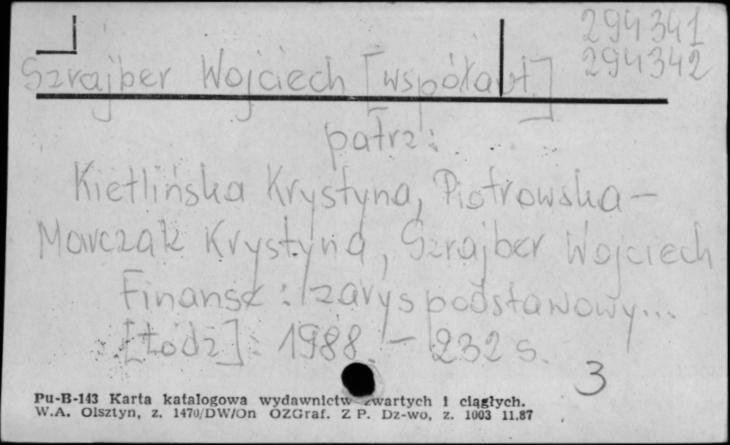 294341
294342
Szrajber Wojciech [współaut]
patrz:
Kietlińska Krystyna, Piotrowska-
Marczak Krystyna, Szrajber Wojciech
Finanse: zarys podstawowy...
[Łódź]: 1988. - 232 s.
3
Pu-B-143 Karta katalogowa wydawnictw zwartych i ciągłych.
W.A. Olsztyn, z. 1470/DW/On OZGraf. Z P. Dz-wo, z. 1003 11.87